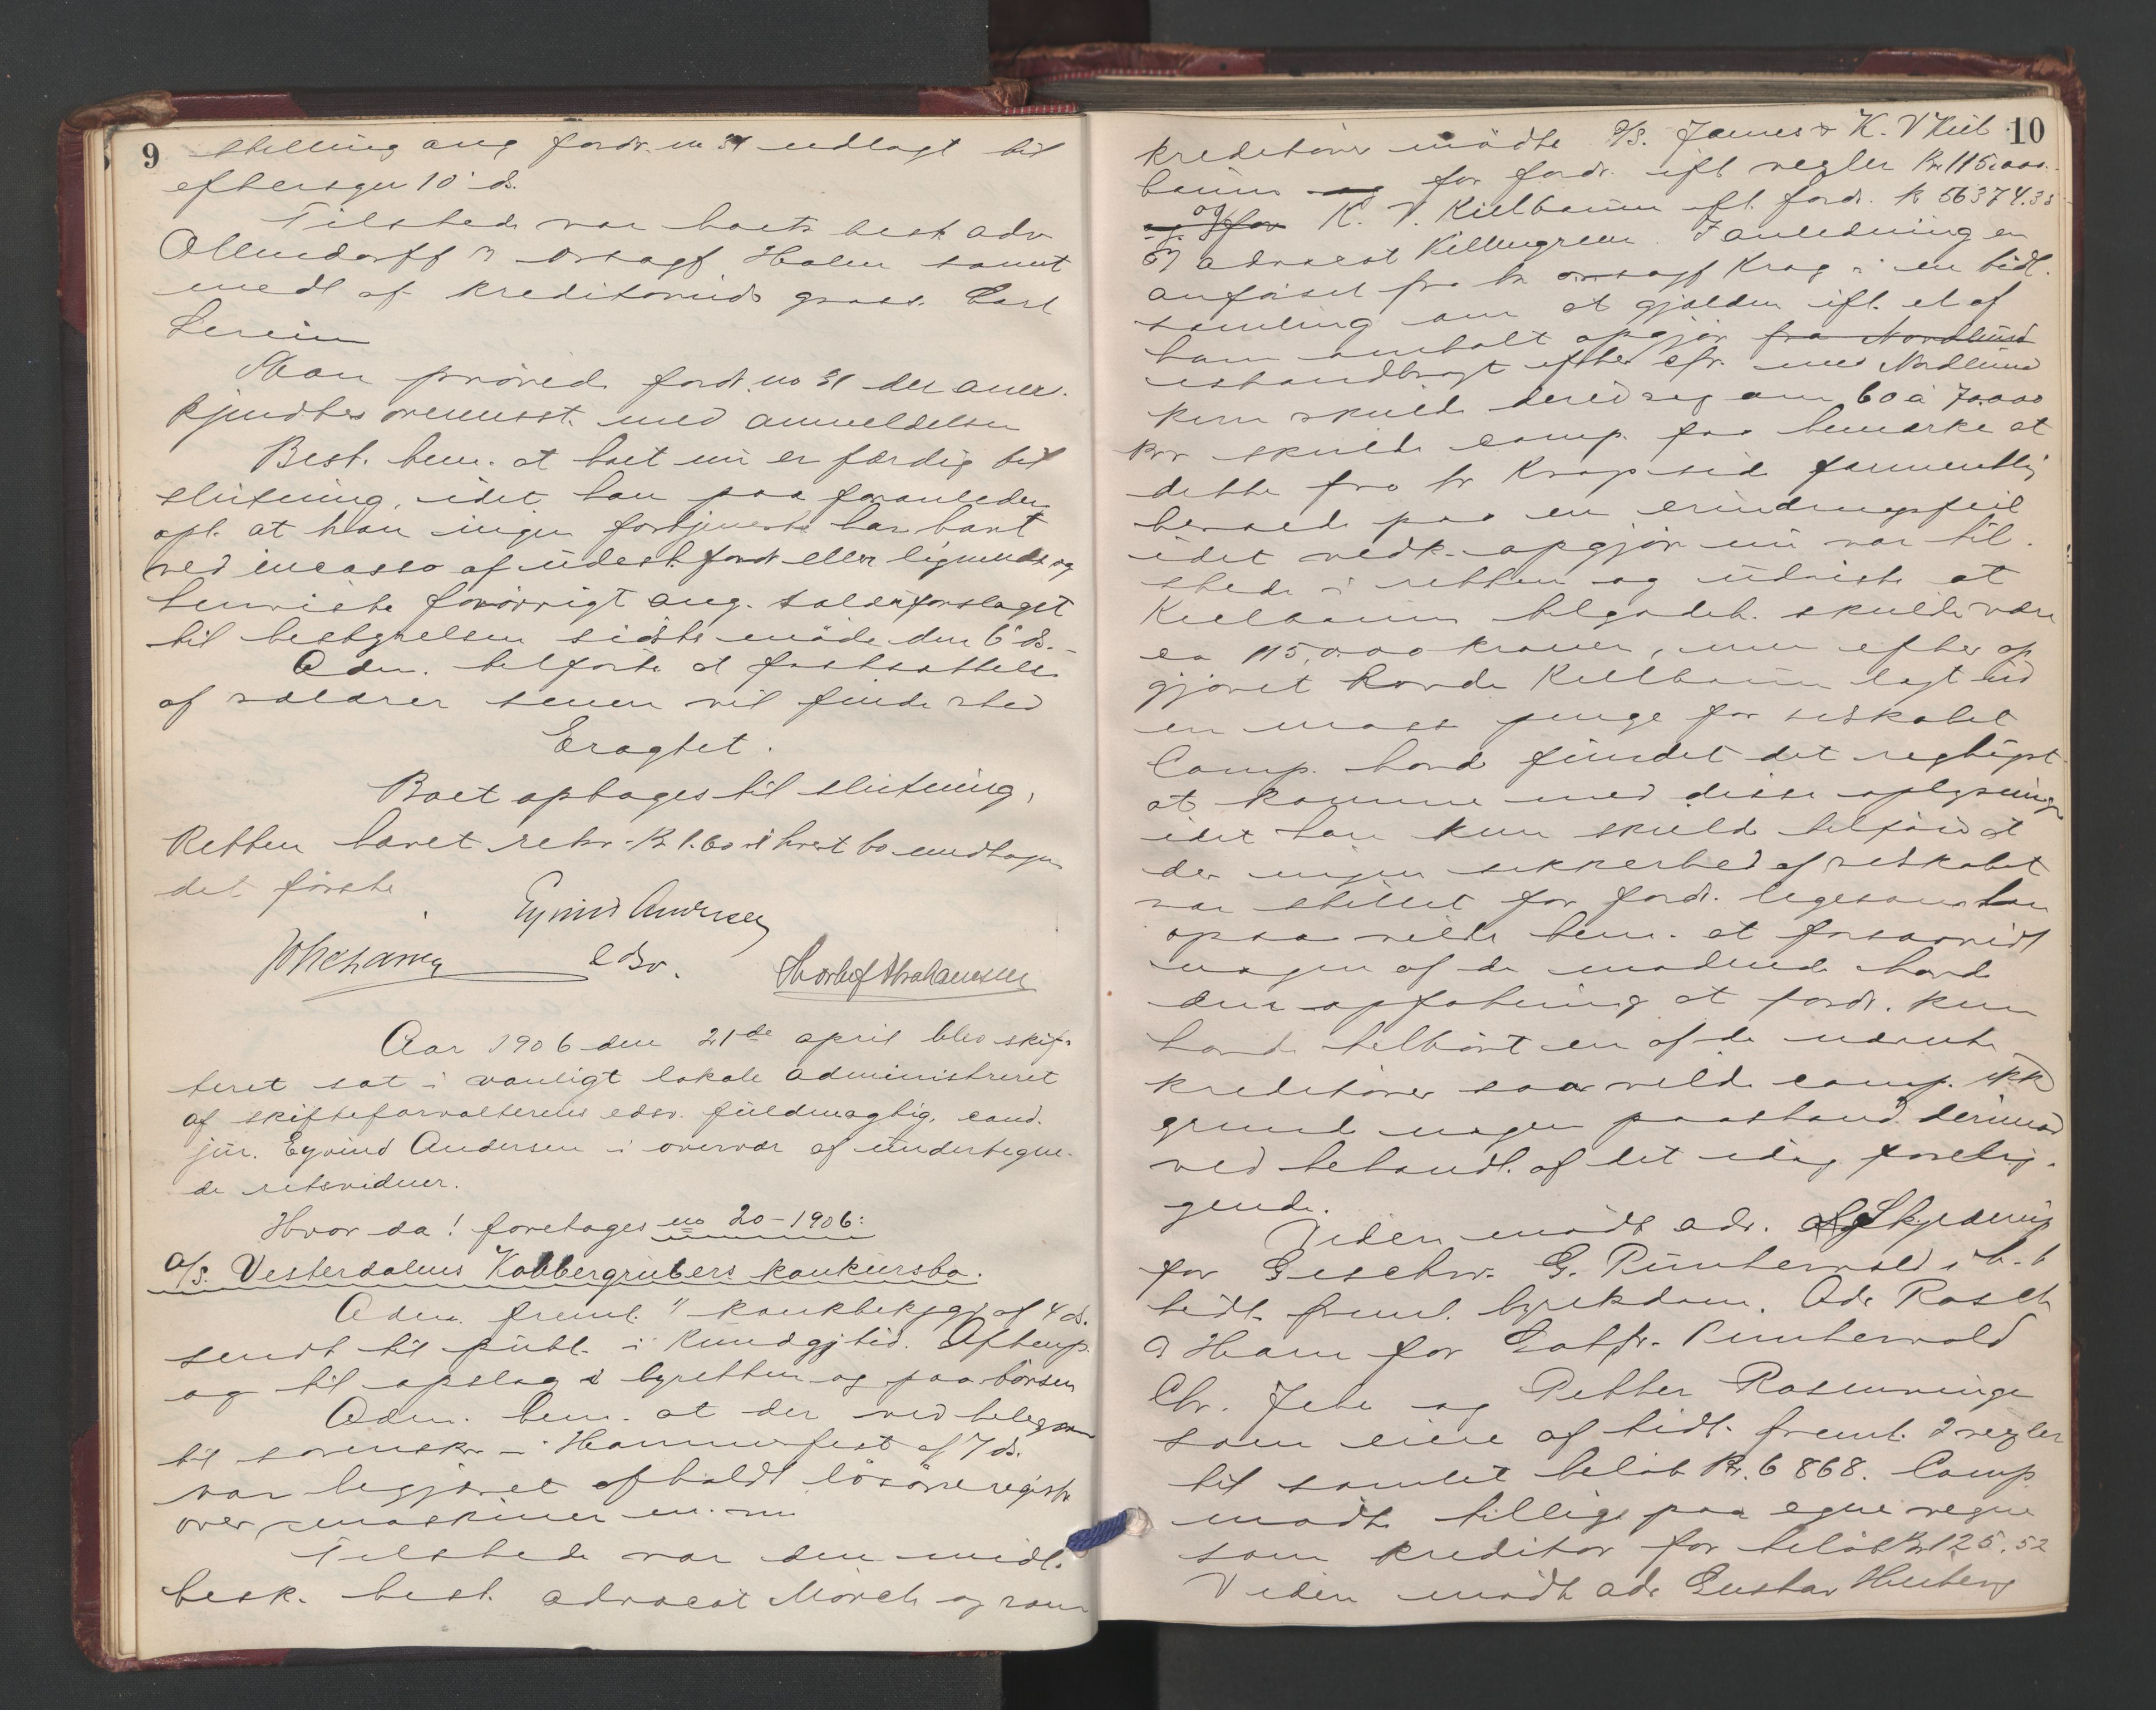 9
stilling ang fordr. no 31 udlagt til
eftersyn 10' ds.
Tilstede var boets best. adv
Ollendorff v. orsagf. Holm samt
medl. af kreditorudv. gross. Carl
Man prøvede fordr. no 31 der aner-
kjendtes overensst. med anmeldelsen
Best. bem. at boet nu er færdig til
slutning, idet han paa foranledn
opl. at han ingen fortjeneste har havt
ved incasso af udest. fordr eller lignende og
henviste forøvrigt ang. salærforslaget
til bestyrelsen sidste møde den 6' ds.
Adm. tilførte at fastsættelse
af salærer senere vil finde sted
Eragtet.
Boet optages til slutning.
Retten hævet rekv. Kr 1.60 i hvert bo undtagen
det første
Eyvind Andersen
edsv.
Thorleif Abrahamsen
Aar 1906 den 21de april blev skif-
teret sat i vanligt lokale administreret
af skifteforvalterens edsv. fuldmægtig, cand.
jur. Eyvind Andersen i overvær af undertegne-
de retsvidner.
Hvor da! foretages no 20-1906:
A/S. Vesterdalens Kobbergrubers konkursbo.
Adm. freml. 1) konkbekjgj af 4 ds.
sendt til publ. i Kundgjtid. Aftenp.
og til opslag i byretten og paa børsen
Adm. bem. at der ved telegram
til sorenskr. i Hammerfest af 7 ds.
var begjæret afholdt løsøreregistr
over maskiner m. m.
Tilstede var den midl.
besk. best. advocat Mørch og som
10
kreditorer mødte A/S. James & K. V Kiel
baum for fordr. ifl vexler Kr. 115.000.
og for K. V. Kielbaum ifl. fordr. kr 56374.38
ov advocat Killengreen. I anledning en
anførsel fra hr orsagf Krag i en tidl.
samling om at gjælden ifl. et af
ham omtalt opgjør fra Nordlund
istandbragt efter cfr. med Nordlund
kun skulde dreie sig om 60 à 70.000
kr skulde comp. faa bemærke at
dette fra hr Krags side formentlig
beroede paa en erindringsfeil
idet vedk. opgjør nu var til-
stede i retten og udviste at
Kielbaums tilgodeh. skulde være
ca 115,000 kroner, men efter op
gjøret havde Kielbaum lagt ud
en masse penge for selskabet
Comp. havde fundet det rigtigst
at komme med disse oplysninger
idet han kun skulde tilføie at
der ingen sikkerhed af selskabet
var stillet for fordr. ligesom han
ogsaa vilde bem. at forsaavidt
nogen af de mødende havde
den opfatning at fordr. kun
havde tilhørt en af de nævnte
kreditorer saa vilde comp. ikke
grunde nogen paastand derimod
ved behandl. af det idag forelig-
gende.
Viden mødte adv. Skjerdrup
for Geschw. G. Pünterwold i h. t
tidl. freml. byretsdom. Adv Rosch
v Horn for Gotfr. Pünterwold
Chr. Jebe og Petter Rosenvinge
som eiere af tidl. freml. 2 vexler
til samlet beløb Kr. 6 868. Comp.
mødte tillige paa egne vegne
som kreditor for beløb Kr 125.52
Viden mødte adv Gustav Heiberg